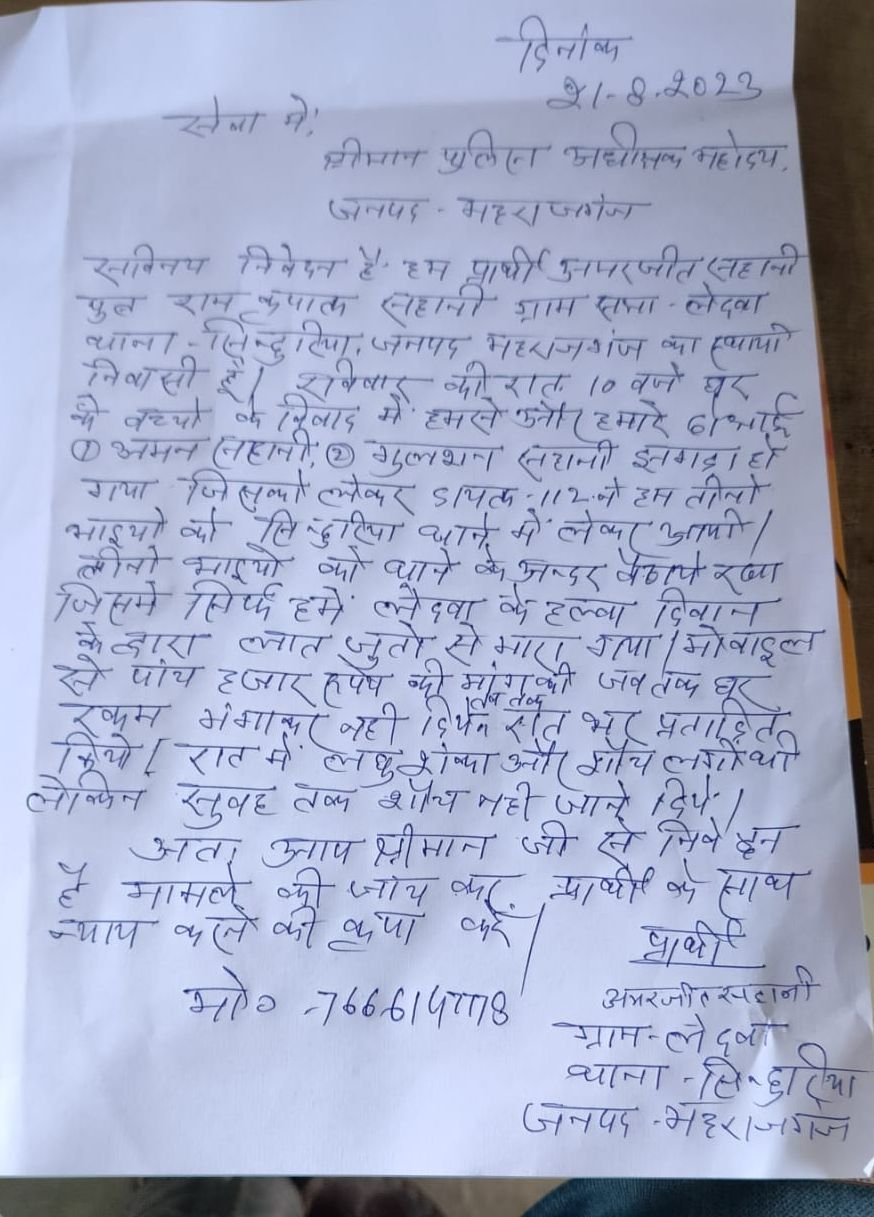 दिनांक
21-8-2023
सेवा में,
श्रीमान पुलिस अधीक्षक महोदय,
जनपद - महराजगंज
सविनय निवेदन है हम प्रार्थी अमरजीत सहानी
पुत्र राम कृपाल सहानी ग्राम सभा - लेदवा
थाना - सिन्दुरिया, जनपद महराजगंज का स्थायी
निवासी हैं। रविवार की रात 10 बजे घर
के बच्चो के विवाद में हमसे और हमारे भाई
① अमन सहानी, ② गुलशन सहानी झगड़ा हो
गया जिसको लेकर डायल-112 ने हम तीनो
भाइयो को सिन्दुरिया थाने में लेकर आयी।
तीनो भाइयो को थाने के अन्दर बैठाये रखा
जिसमे सिर्फ हमें लेदवा के हल्का दिवान
के द्वारा लात जुतो से मारा गया। मोबाइल
से पांच हजार रूपये की मांग की जब तक घर
रकम मंगाकर नही दिये तब तक रात भर प्रताड़ित
किये। रात में लघुशंका और शौच लगी थी
लेकिन सुबह तक शौच नही जाने दिये।
अतः आप श्रीमान जी से निवेदन
है मामले की जांच कर प्रार्थी के साथ
न्याय करने की कृपा करें।
प्रार्थी
अमरजीत सहानी
मो०
ग्राम - लेदवा
थाना - सिन्दुरिया
जनपद - महराजगंज